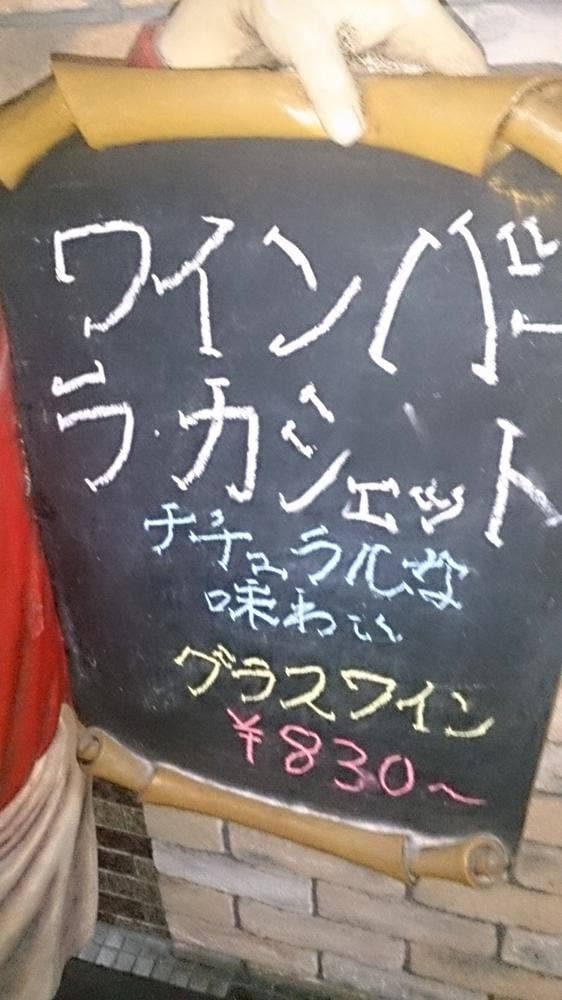 ワインバー
ラ・カシェット
ナチュラルな
味わい
グラスワイン
¥830~